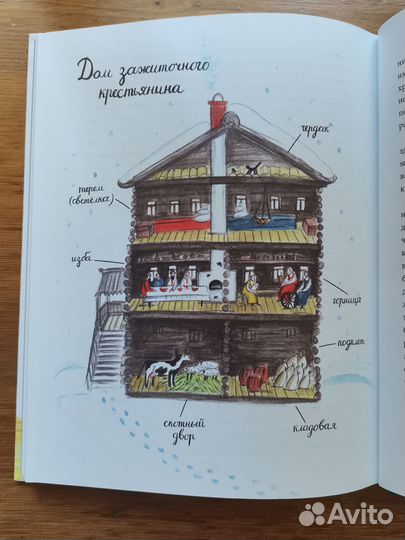 Дом зажиточного
крестьянина
чердак
терем
(светёлка)
изба
горница
подклет
скотный
двор
кладовая
Avito